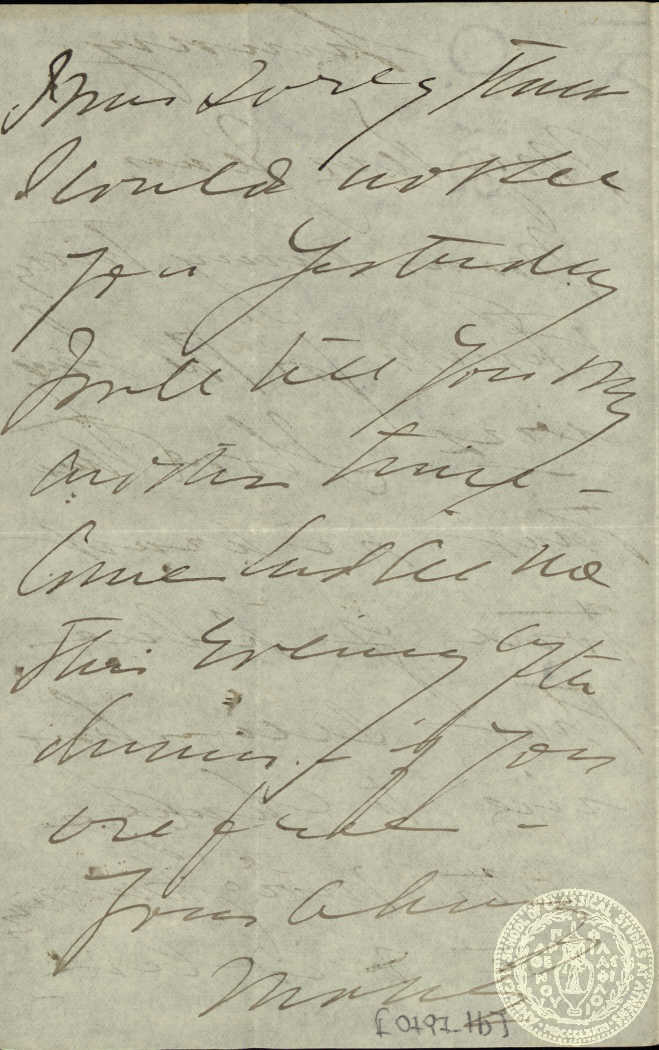 I was Sorry that
I could not see
you Yesterday
I will tell you why
another time -
Come and see me
this Evening after
dinner - if you
are free -
Yours